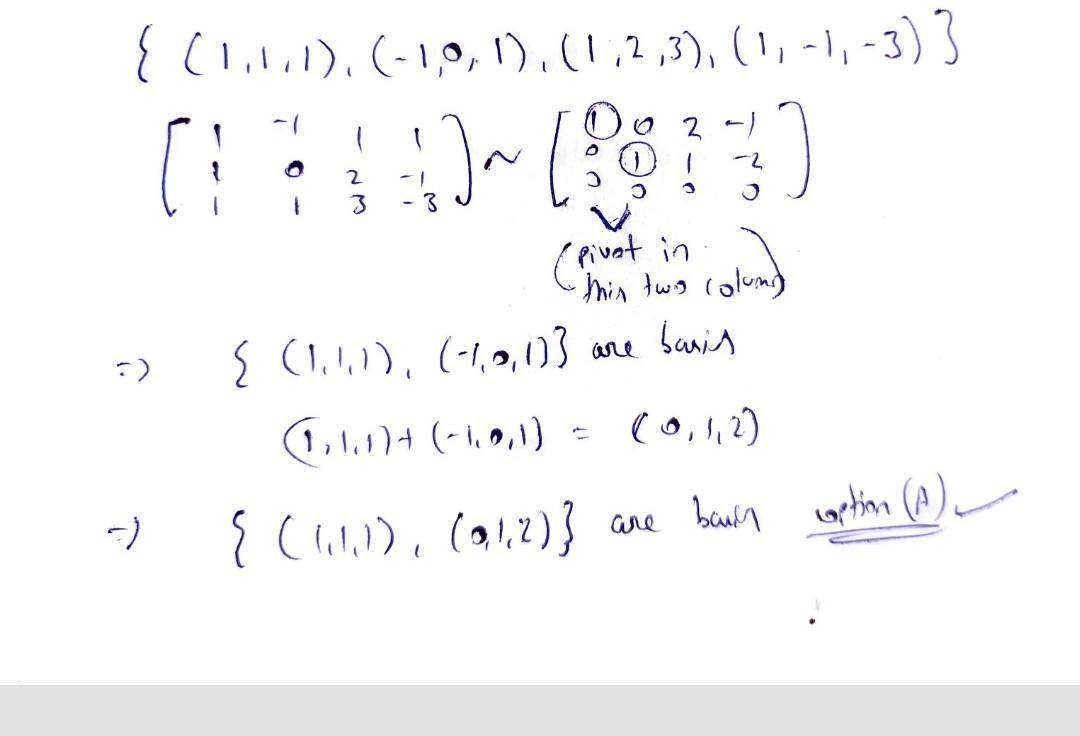 { (1,1,1), (-1,0,1), (1,2,3), (1,-1,-3) }
[ 1 -1 1 1 ] ~ [ 1 0 2 -1 ]
1 0 2 -1 0 1 1 -2
1 1 3 -3 0 0 0 0
(pivot in
this two colums)
=> { (1,1,1), (-1,0,1)} are basis
(1,1,1)+(-1,0,1) = (0,1,2)
=) { (1,1,1), (0,1,2)} are basis option (A) ✓